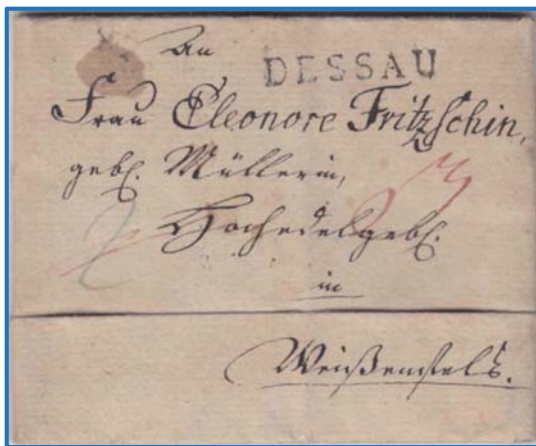 An
DESSAU
Frau Eleonore Fritzschin,
geb. Müllerin,
Hochedelgeb.
in
Weißenfels.